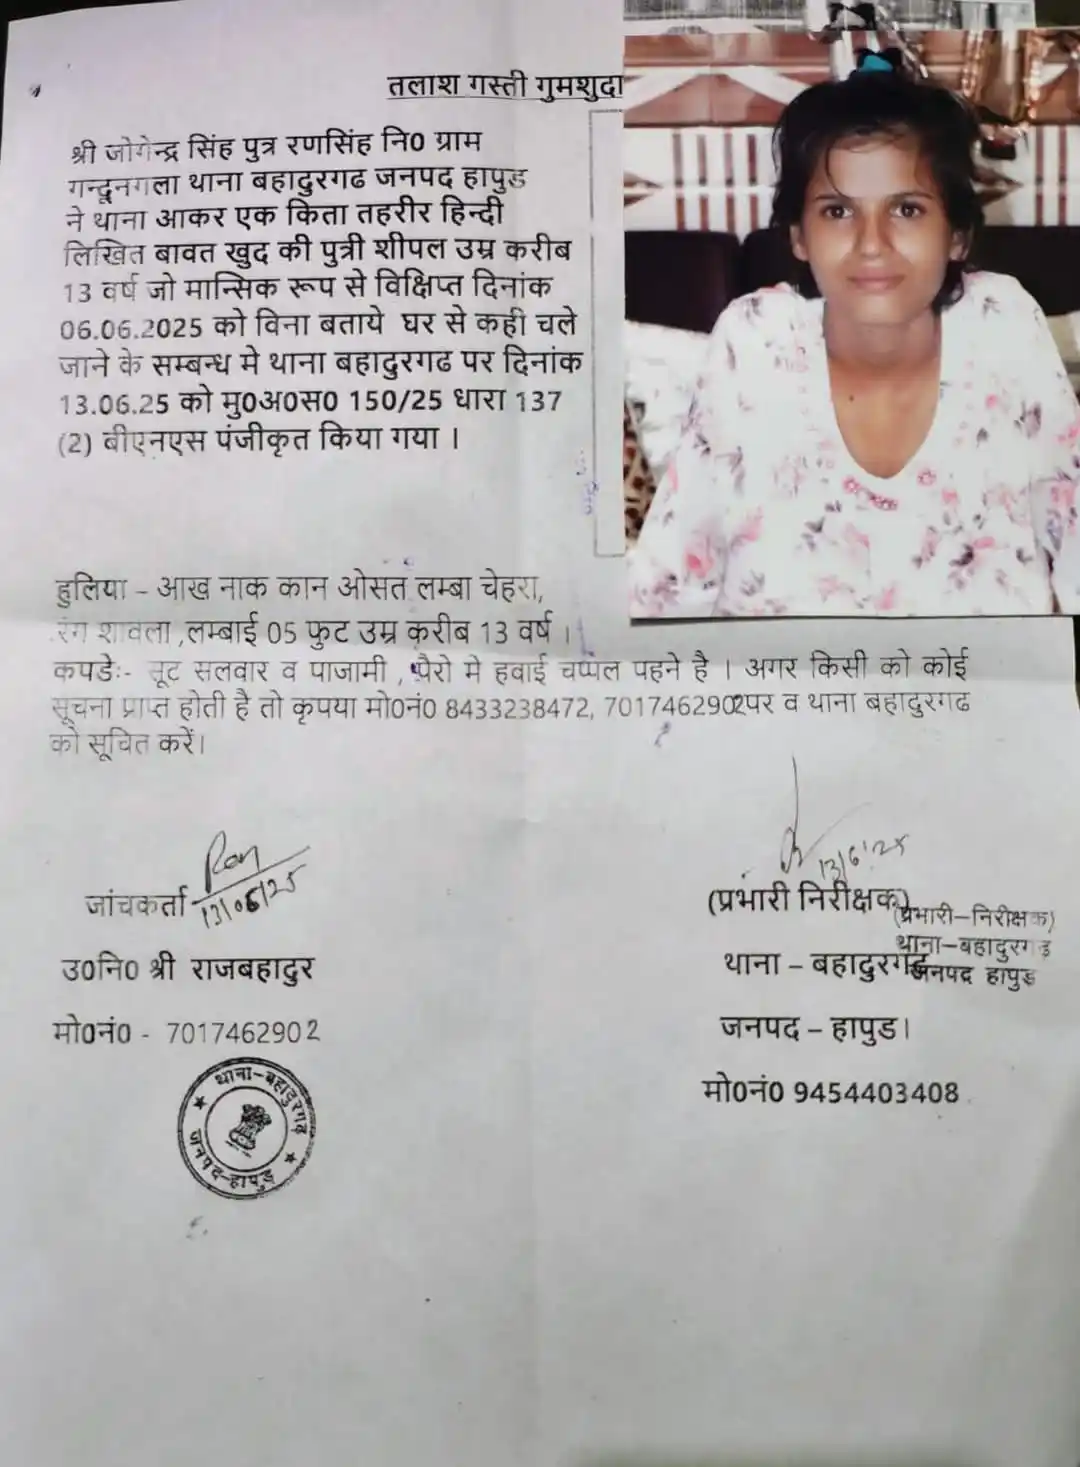 तलाश गस्ती गुमशुदा
श्री जोगेन्द्र सिंह पुत्र रणसिंह नि0 ग्राम
गन्दूनगला थाना बहादुरगढ जनपद हापुड
ने थाना आकर एक किता तहरीर हिन्दी
लिखित बावत खुद की पुत्री शीपल उम्र करीब
13 वर्ष जो मान्सिक रूप से विक्षिप्त दिनांक
06.06.2025 को विना बताये घर से कही चले
जाने के सम्बन्ध मे थाना बहादुरगढ पर दिनांक
13.06.25 को मु0अ0स0 150/25 धारा 137
(2) बीएनएस पंजीकृत किया गया ।
हुलिया – आख नाक कान ओसत लम्बा चेहरा,
रंग शावला ,लम्बाई 05 फुट उम्र करीब 13 वर्ष ।
कपडेः- सूट सलवार व पाजामी , पैरो मे हवाई चप्पल पहने है । अगर किसी को कोई
सूचना प्राप्त होती है तो कृपया मो0नं0 8433238472, 7017462902पर व थाना बहादुरगढ
को सूचित करें।
Ram
13/06/25
जांचकर्ता
उ0नि0 श्री राजबहादुर
मो0नं0 - 7017462902
थाना-बहादुरगढ़
जनपद-हापुड़
13/6/25
(प्रभारी निरीक्षक)
थाना – बहादुरगढ
जनपद – हापुड।
मो0नं0 9454403408
(प्रभारी-निरीक्षक)
थाना-बहादुरगढ़
जनपद हापुड़